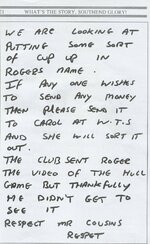 WHAT'S THE STORY, SOUTHEND GLORY!
WE ARE LOOKING AT
PUTTING SOME SORT
OF CUP UP IN
ROGERS NAME.
IF ANY ONE WISHES
TO SEND ANY MONEY
THEN PLEASE SEND IT
TO CAROL AT W.T.S
AND SHE WILL SORT IT
OUT.
THE CLUB SENT ROGER
THE VIDEO OF THE HULL
GAME BUT THANKFULLY
HE DIDN'T GET TO
SEE IT
RESPECT MR COUSINS
RESPET